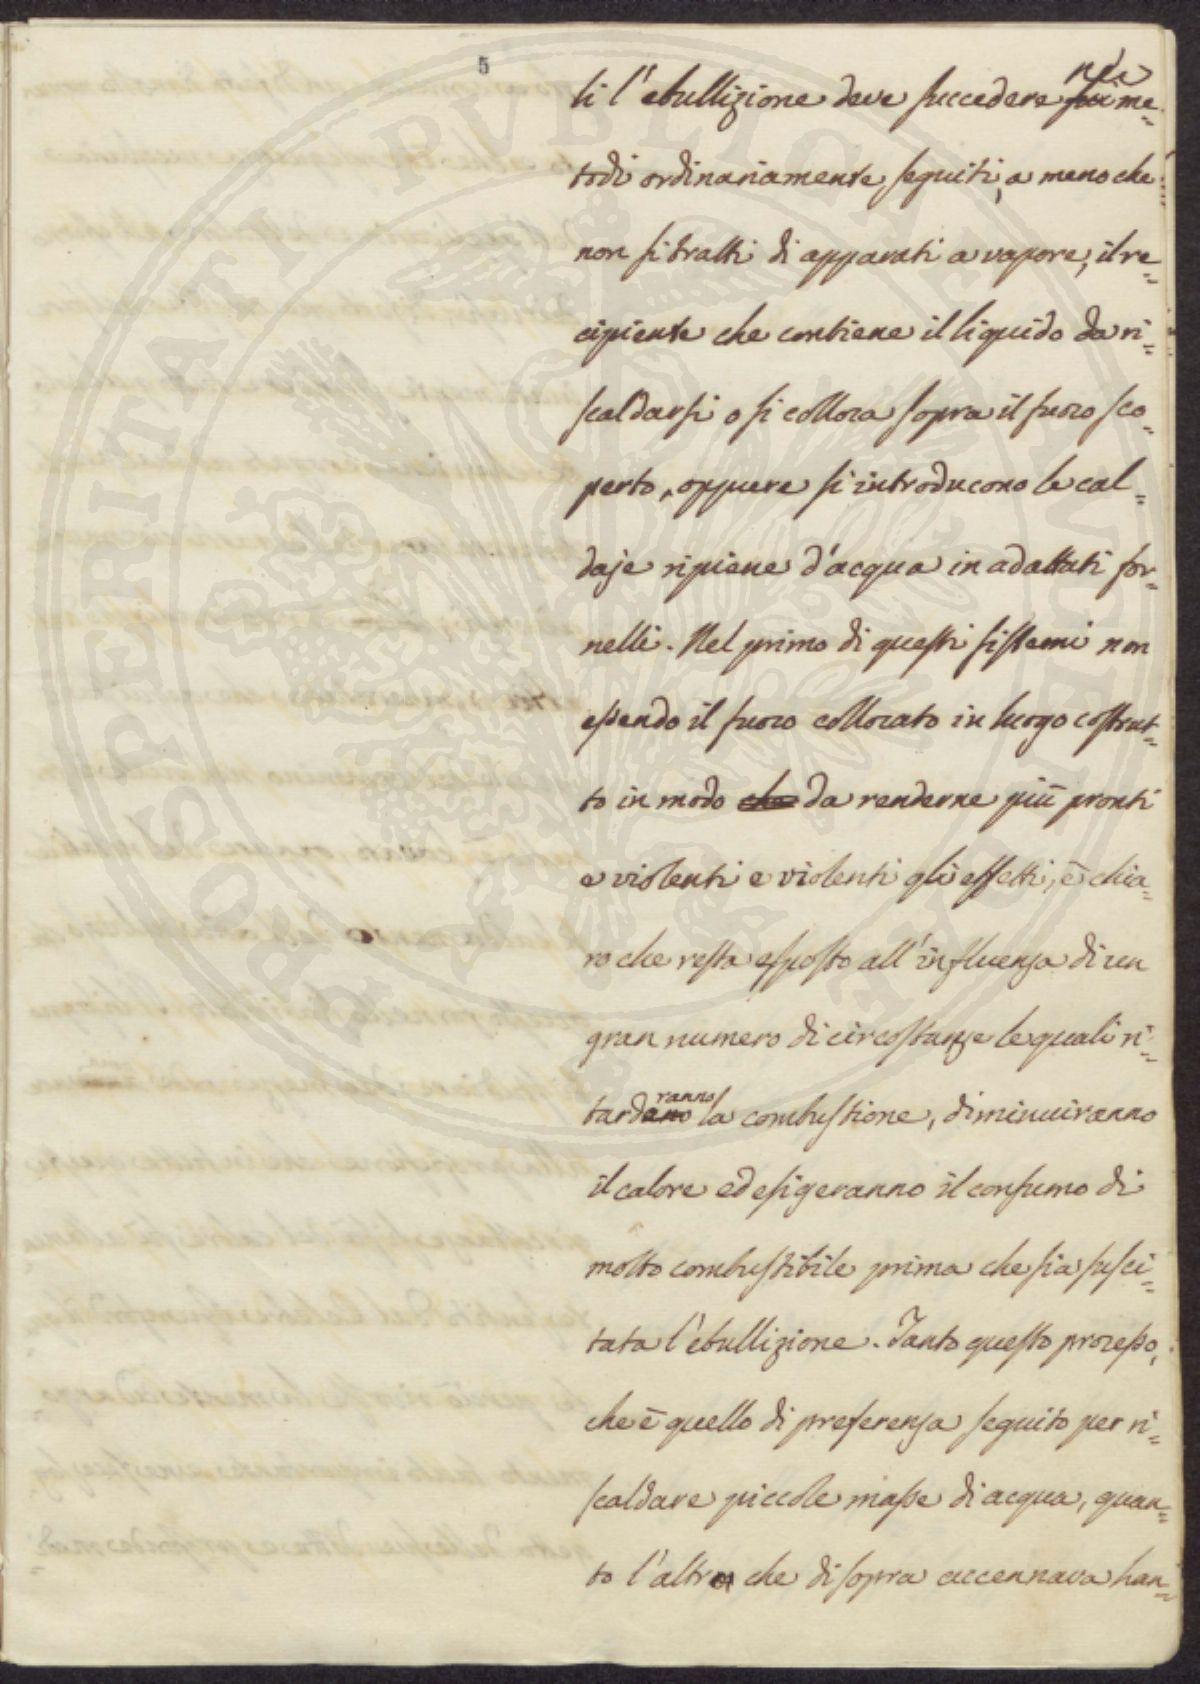 5
nei
li l'ebullizione deve succedere sui me=
todi ordinariamente seguiti, a meno che
non si tratti di apparati a vapore, il re=
cipiente che contiene il liquido da ri=
scaldarsi o si colloca sopra il fuoco sco=
perto, oppure si introducono le cal=
daje ripiene d'acqua in adattati for=
nelli. Nel primo di questi sistemi non
essendo il fuoco collocato in luogo costrut=
to in modo che da renderne più pronti
e violenti e violenti gli effetti, è chia=
ro che resta esposto all'influenza di un
gran numero di circostanze le quali ri=
ranno
tardano la combustione, diminuiranno
il calore ed esigeranno il consumo di
molto combustibile prima che sia susci=
tata l'ebullizione. Tanto questo processo,
che è quello di preferenza seguito per ri=
scaldare piccole masse di acqua, quan=
to l'altro che di sopra accennava han=
PROSPERITATI PUBLICAE AUGENDAE